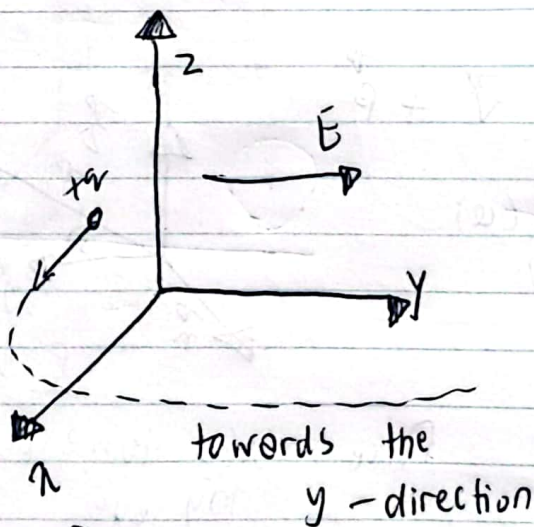 z
E
+q
y
towards the
x
y - direction